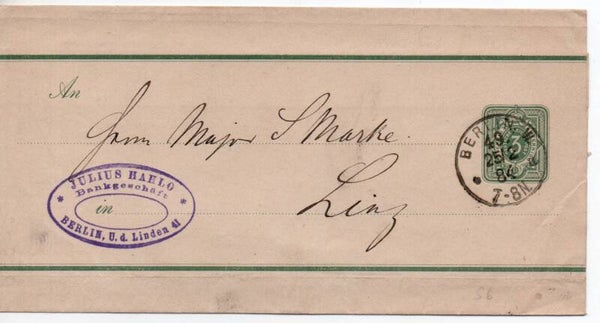 An
Herrn Major S Marke.
Linz
* JULIUS HAHLO *
Bankgeschäft
in
BERLIN, U. d. Linden 41
BERLIN W.
3
7-8N.
56